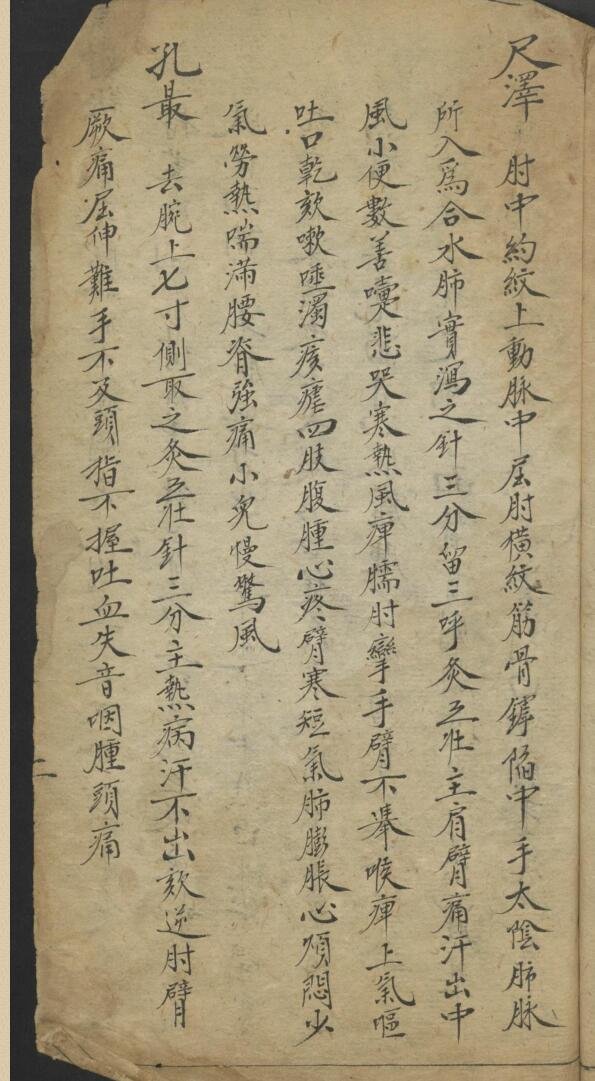 尺澤 肘中約紋上動脉中屈肘橫紋筋骨罅陷中手太陰肺脉
所入爲合水肺實瀉之針三分留三呼灸五壯主肩臂痛汗出中
風小便數善嚏悲哭寒熱風痺臑肘攣手臂不舉喉痺上氣嘔
吐口乾欬嗽唾濁痎瘧四肢腹腫心疼臂寒短氣肺膨脹心煩悶少
氣勞熱喘滿腰脊強痛小兒慢驚風
孔最 去腕上七寸側取之灸五壯針三分主熱病汗不出欬逆肘臂
厥痛屈伸難手不及頭指不握吐血失音咽腫頭痛